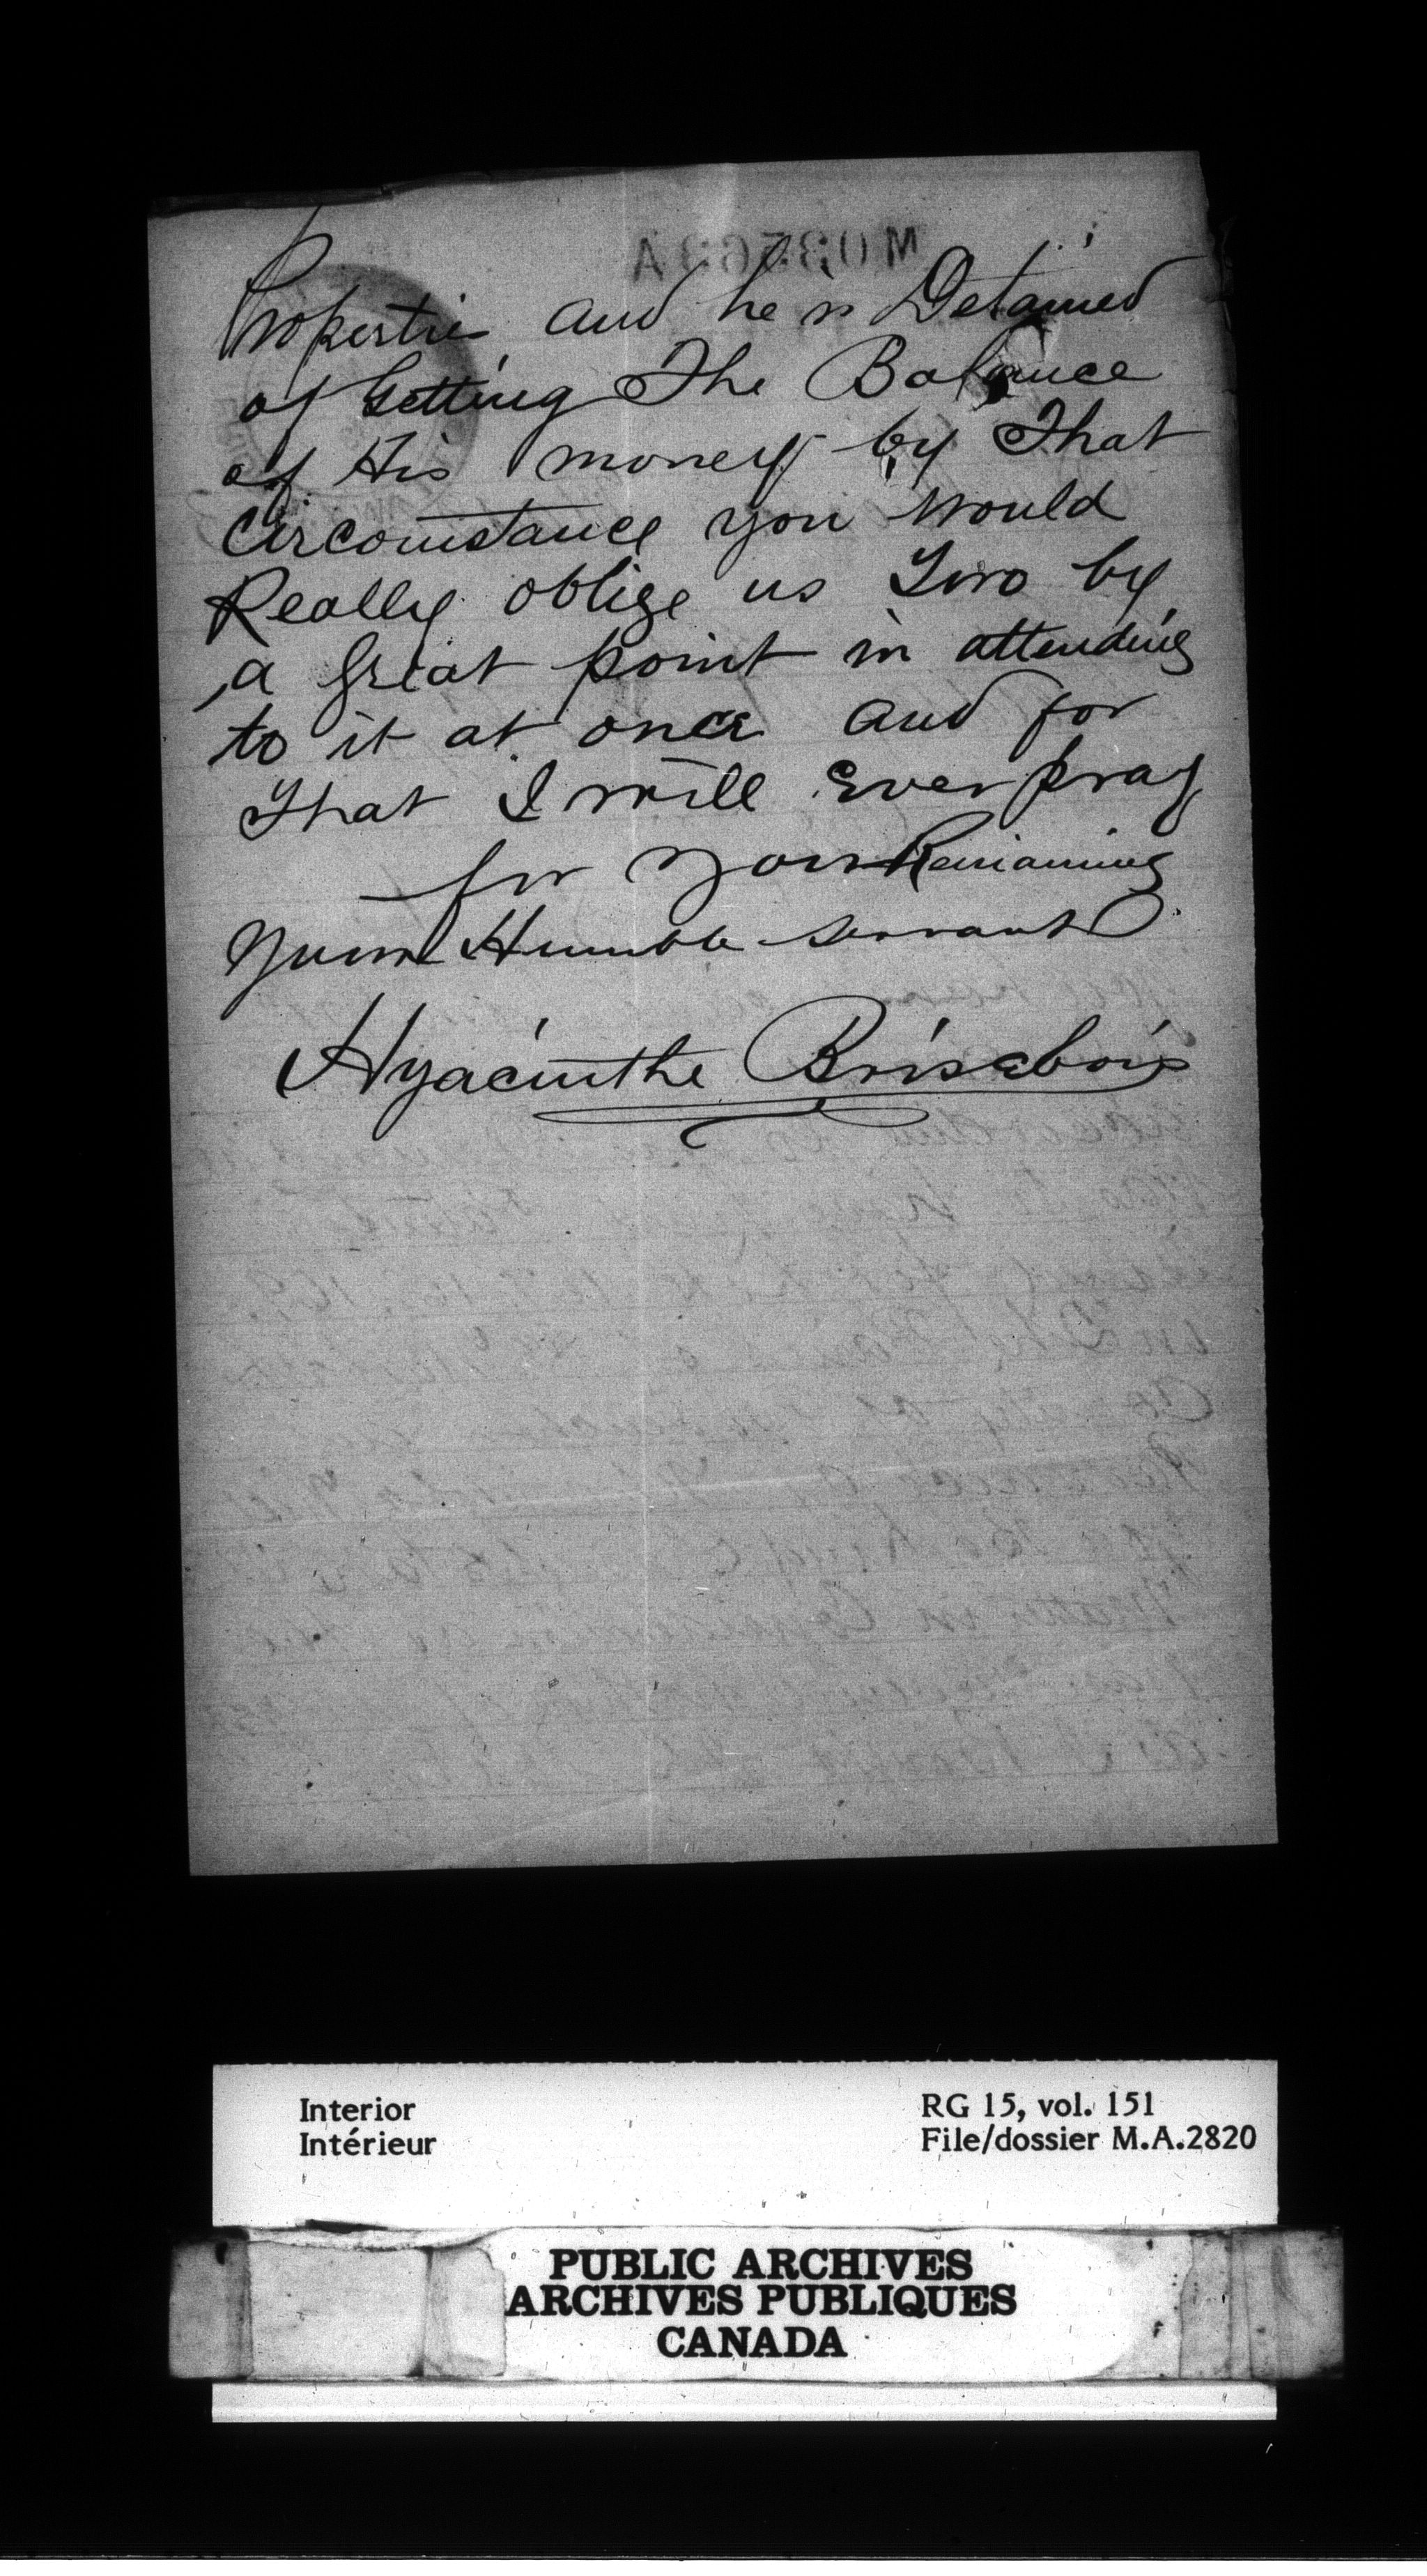 Propertie and he is Detained
of Getting The Balance
of His money by That
Circomstance you would
Really oblige us Two by
a great point in attending
to it at once and for
that I will Ever pray
for your Remaining
your Humble servant
Hyacinthe Brisebois
Interior
Intérieur
RG 15, vol. 151
File/dossier M.A.2820
PUBLIC ARCHIVES
ARCHIVES PUBLIQUES
CANADA